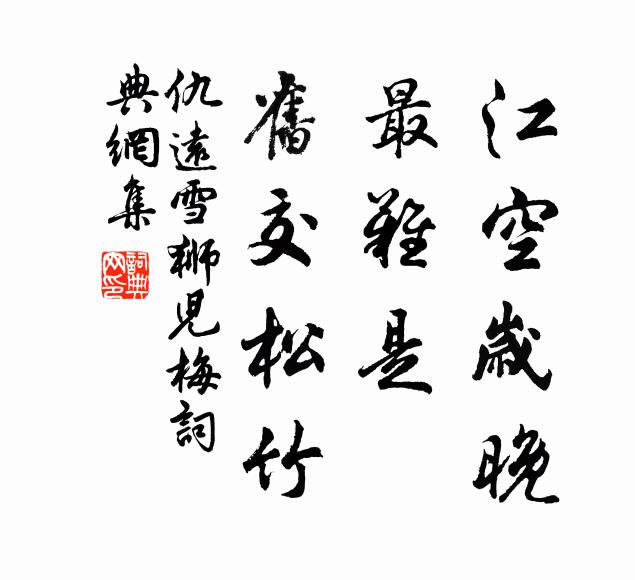 江空歲晚
最難是
舊交松竹
仇遠雪獅児梅詞
典網集
詞典
网印